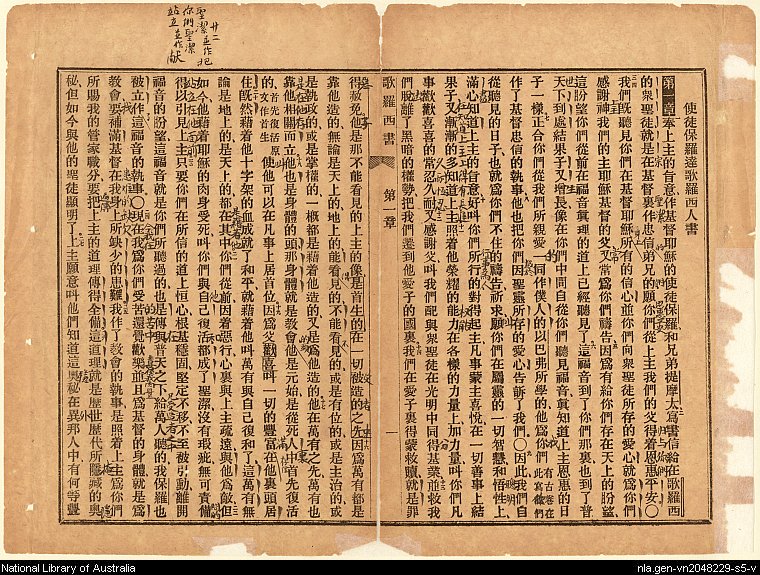 使徒保羅達歌羅西人書
第一章奉上主的旨意作基督耶穌的使徒保羅和兄弟提摩太寫書信給在歌羅西
的衆聖徒就是在基督裏作忠信弟兄的願你們從上主我們的父得着恩惠平安〇
我們既聽見你們在基督耶穌所有的信心並你們向衆聖徒所存的愛心就爲你們
感謝神我們的主耶穌基督的父又常爲你們禱告因爲有給你們存在天上的盼望
這盼望你們從前在福音眞理的道上已經聽見了這福音到了你們那裏也到了普
天下到處結果子又增長像在你們中間自從你們聽見福音眞知道上主恩惠的日
子一樣正合你們從我們所親愛一同作僕人的以巴弗所學的他爲你們有古卷在此爲我們
作了基督忠信的執事他也把你們因聖靈所存的愛心告訴了我們〇因此我們自
從聽見的日子也就爲你們不住的禱告祈求願你們在屬靈的一切智慧和悟性上
滿心知道上主的旨意好叫你們所行的對得起主凡事蒙主喜悅在一切善事上結
果子又漸漸的多知道上主照着他榮耀的能力在各樣的力量上加力量叫你們凡
事歡歡喜喜的常忍久耐又感謝父叫我們配與衆聖徒在光明中同得基業並救我
們脫離了黑暗的權勢把我們遷到他愛子的國裏我們在愛子裏得蒙救贖就是罪
歌羅西書 第一章 一
得赦免他是那不能看見的上主的像是首生的在一切被造的之先因爲萬有都是
靠他造的無論是天上的地上的能看見的不能看見的或是有位的或是主治的或
是執政的或是掌權的一概都是藉着他造的又是爲他造的他在萬有之先萬有也
靠他相關而立他也是身體的頭那身體就是教會他是元始是從死人中首先復活
的首先復活原文作首生使他可以在凡事上居首位因爲父歡喜叫一切的豐富在他裏頭居
住既然藉着他十字架的血成就了和平就藉着他叫萬有與自己復和了這萬有無
論是地上的是天上的都在其中你們從前因着惡行心裏與上主疏遠與他爲敵但
如今他藉着耶穌的肉身受死叫你們與自己復活都成了聖潔沒有瑕疵無可責備
得以引見上主只要你們在所信的道上恒心根基穩固堅定不移不至被引動離開
福音的盼望這福音就是你們所聽過的也是傳與普天之下給萬人聽的我保羅也
被立作這福音的執事〇現在我爲你們受苦還覺歡樂並且爲基督的身體就是爲
教會要補滿基督在我身上所缺少的患難我作了教會的執事是照着上主爲你們
所賜我的管家職分要把上主的道理傳得全備這道理就是歷世歷代所隱藏的奥
秘但如今與他的聖徒顯明了上主願意叫他們知道這奥秘在異邦人中有何等豐
廿二
聖潔並作把
你們聖潔
站立並作獻
National Library of Australia
nla.gen-vn2048229-s5-v